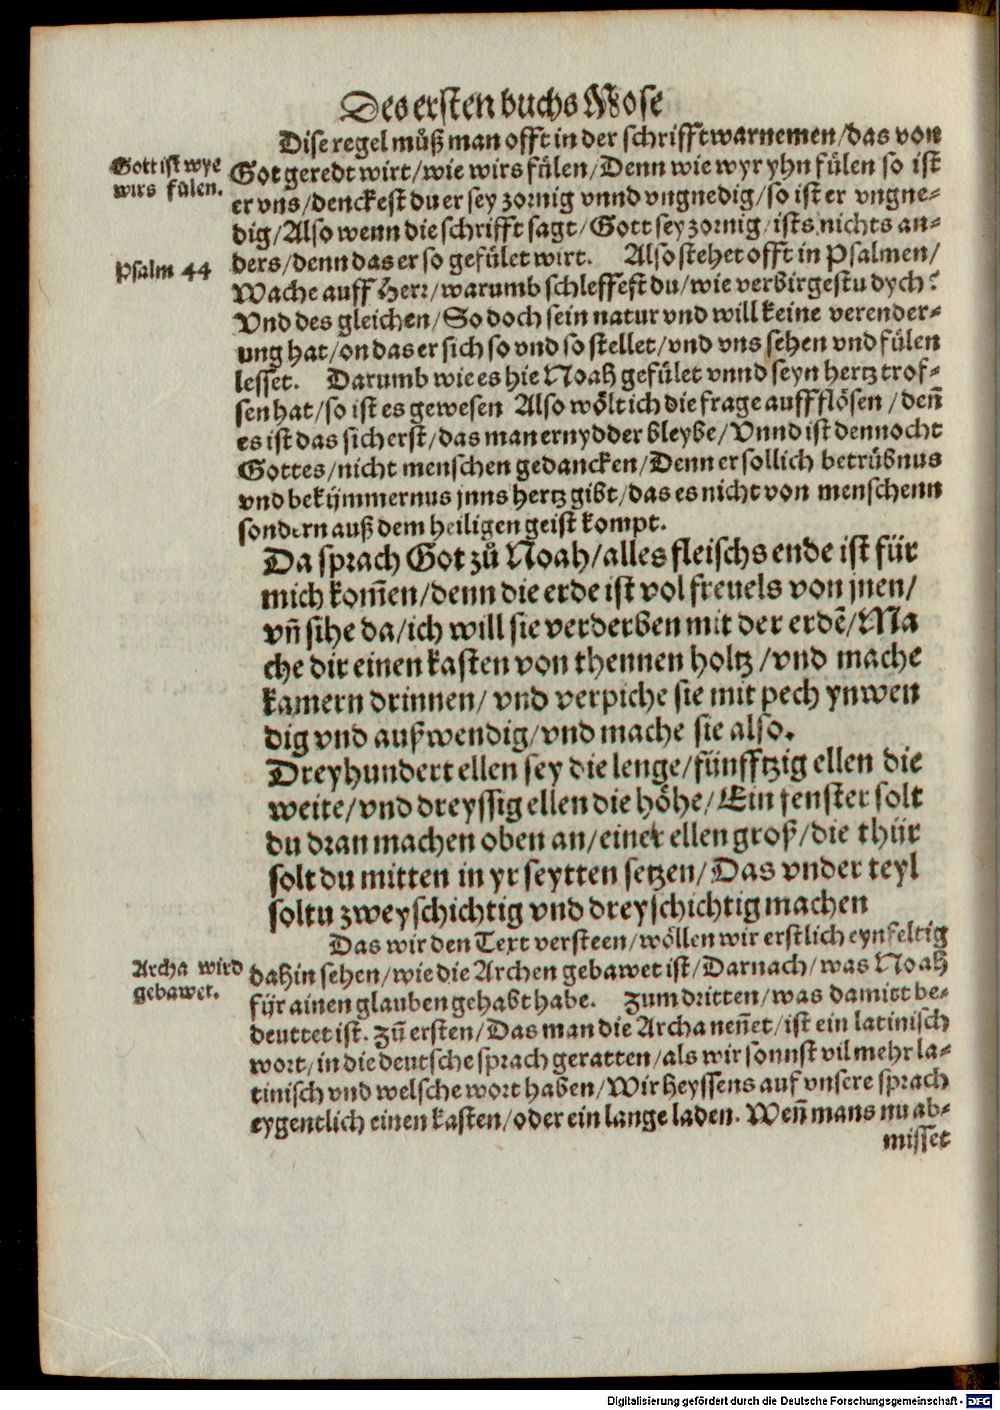 Des ersten buchs Mose
Dise regel müß man offt in der schrifft warnemen/das von
Gott ist wye
wirs fülen.
Got geredt wirt/wie wirs fülen/Denn wie wyr yhn fülen so ist
er vns/denckest du er sey zornig vnnd vngnedig/so ist er vngne-
dig/Also wenn die schrifft sagt/Gott sey zornig/ists nichts an-
Psalm 44
ders/denn das er so gefület wirt. Also stehet offt in Psalmen/
Wache auff Herr/warumb schleffest du/wie verbirgestu dych?
Vnd des gleichen/So doch sein natur vnd will keine verender-
ung hat/on das er sich so vnd so stellet/vnd vns sehen vnd fülen
lesset. Darumb wie es hie Noah gefület vnnd seyn hertz trof-
fen hat/so ist es gewesen Also wölt ich die frage auffflösen/den̄
es ist das sicherst/das man ernydder bleybe/Vnnd ist dennocht
Gottes/nicht menschen gedancken/Denn er sollich betrübnus
vnd bekümmernus jnns hertz gibt/das es nicht von menschenn
sondern auß dem heiligen geist kompt.
Da sprach Got zů Noah/alles fleischs ende ist für
mich kom̄en/denn die erde ist vol freuels von jnen/
vn̄ sihe da/ich will sie verderben mit der erdē/Ma
che dir einen kasten von thennen holtz/vnd mache
kamern drinnen/vnd verpiche sie mit pech ynwen
dig vnd außwendig/vnd mache sie also.
Dreyhundert ellen sey die lenge/fünfftzig ellen die
weite/vnd dreyssig ellen die höhe/Ein fenster solt
du dran machen oben an/einer ellen groß/die thür
solt du mitten in yr seytten setzen/Das vnder teyl
soltu zweyschichtig vnd dreyschichtig machen
Das wir den Text versteen/wöllen wir erstlich eynfeltig
Archa wird
gebawet.
dahin sehen/wie die Archen gebawet ist/Darnach/was Noah
für ainen glauben gehabt habe. Zum dritten/was damitt be-
deuttet ist. Zu̅ ersten/Das man die Archa nen̄et/ist ein latinisch
wort/in die deutsche sprach geratten/als wir sonnst vil mehr la-
tinisch vnd welsche wort haben/Wir heyssens auf vnsere sprach
eygentlich einen kasten/oder ein lange laden. Wen̄ mans nu ab-
misset
Digitalisierung gefördert durch die Deutsche Forschungsgemeinschaft - DFG